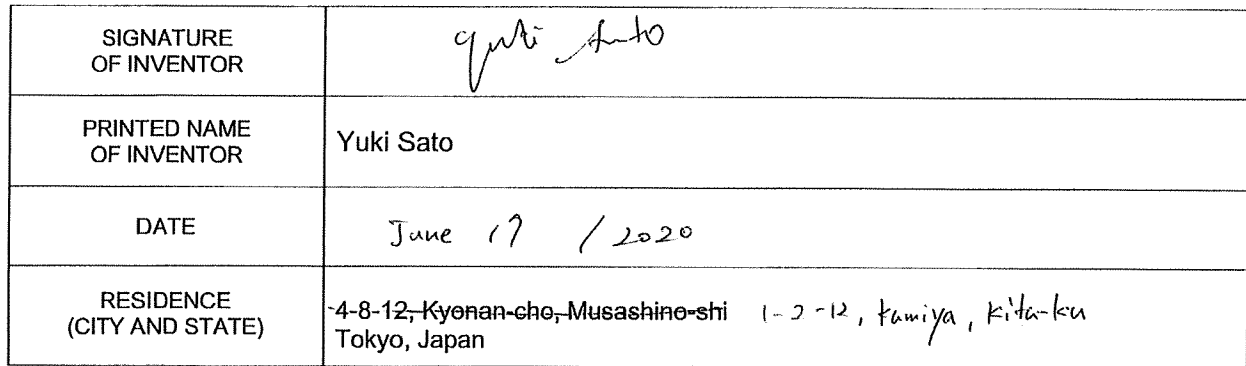 SIGNATURE
OF INVENTOR
Yuki Sato
PRINTED NAME
OF INVENTOR
Yuki Sato
DATE
June 17 / 2020
RESIDENCE
(CITY AND STATE)
4-8-12, Kyonan-cho, Musashino-shi 1-2-12, kamiya, Kita-ku
Tokyo, Japan